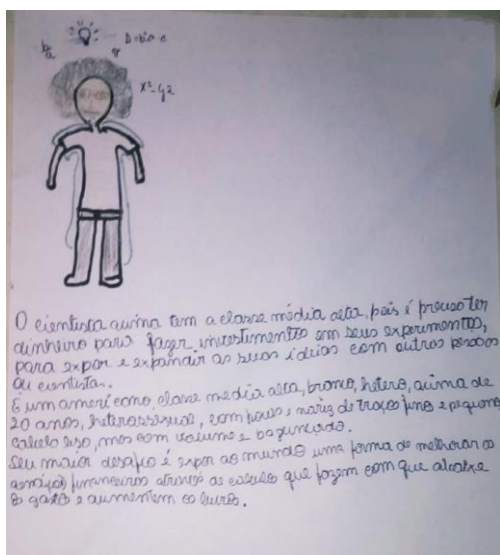 x²-y²
O cientista acima tem a classe média alta, pois é preciso ter
dinheiro para fazer investimentos em seus experimentos,
para expor e expandir as suas ideias com outras pessoas
ou cientistas.
É um americano, classe media alta, branco, hetero, acima de
20 anos, heterossexual, com e nariz de traços finos e pequeno
cabelo liso, mas com volume e bagunçado.
Seu maior desafio é expor ao mundo uma forma de melhorar os
financeiros através de calculo que fazem com que abaixe
o gasto e aumentem os lucros.